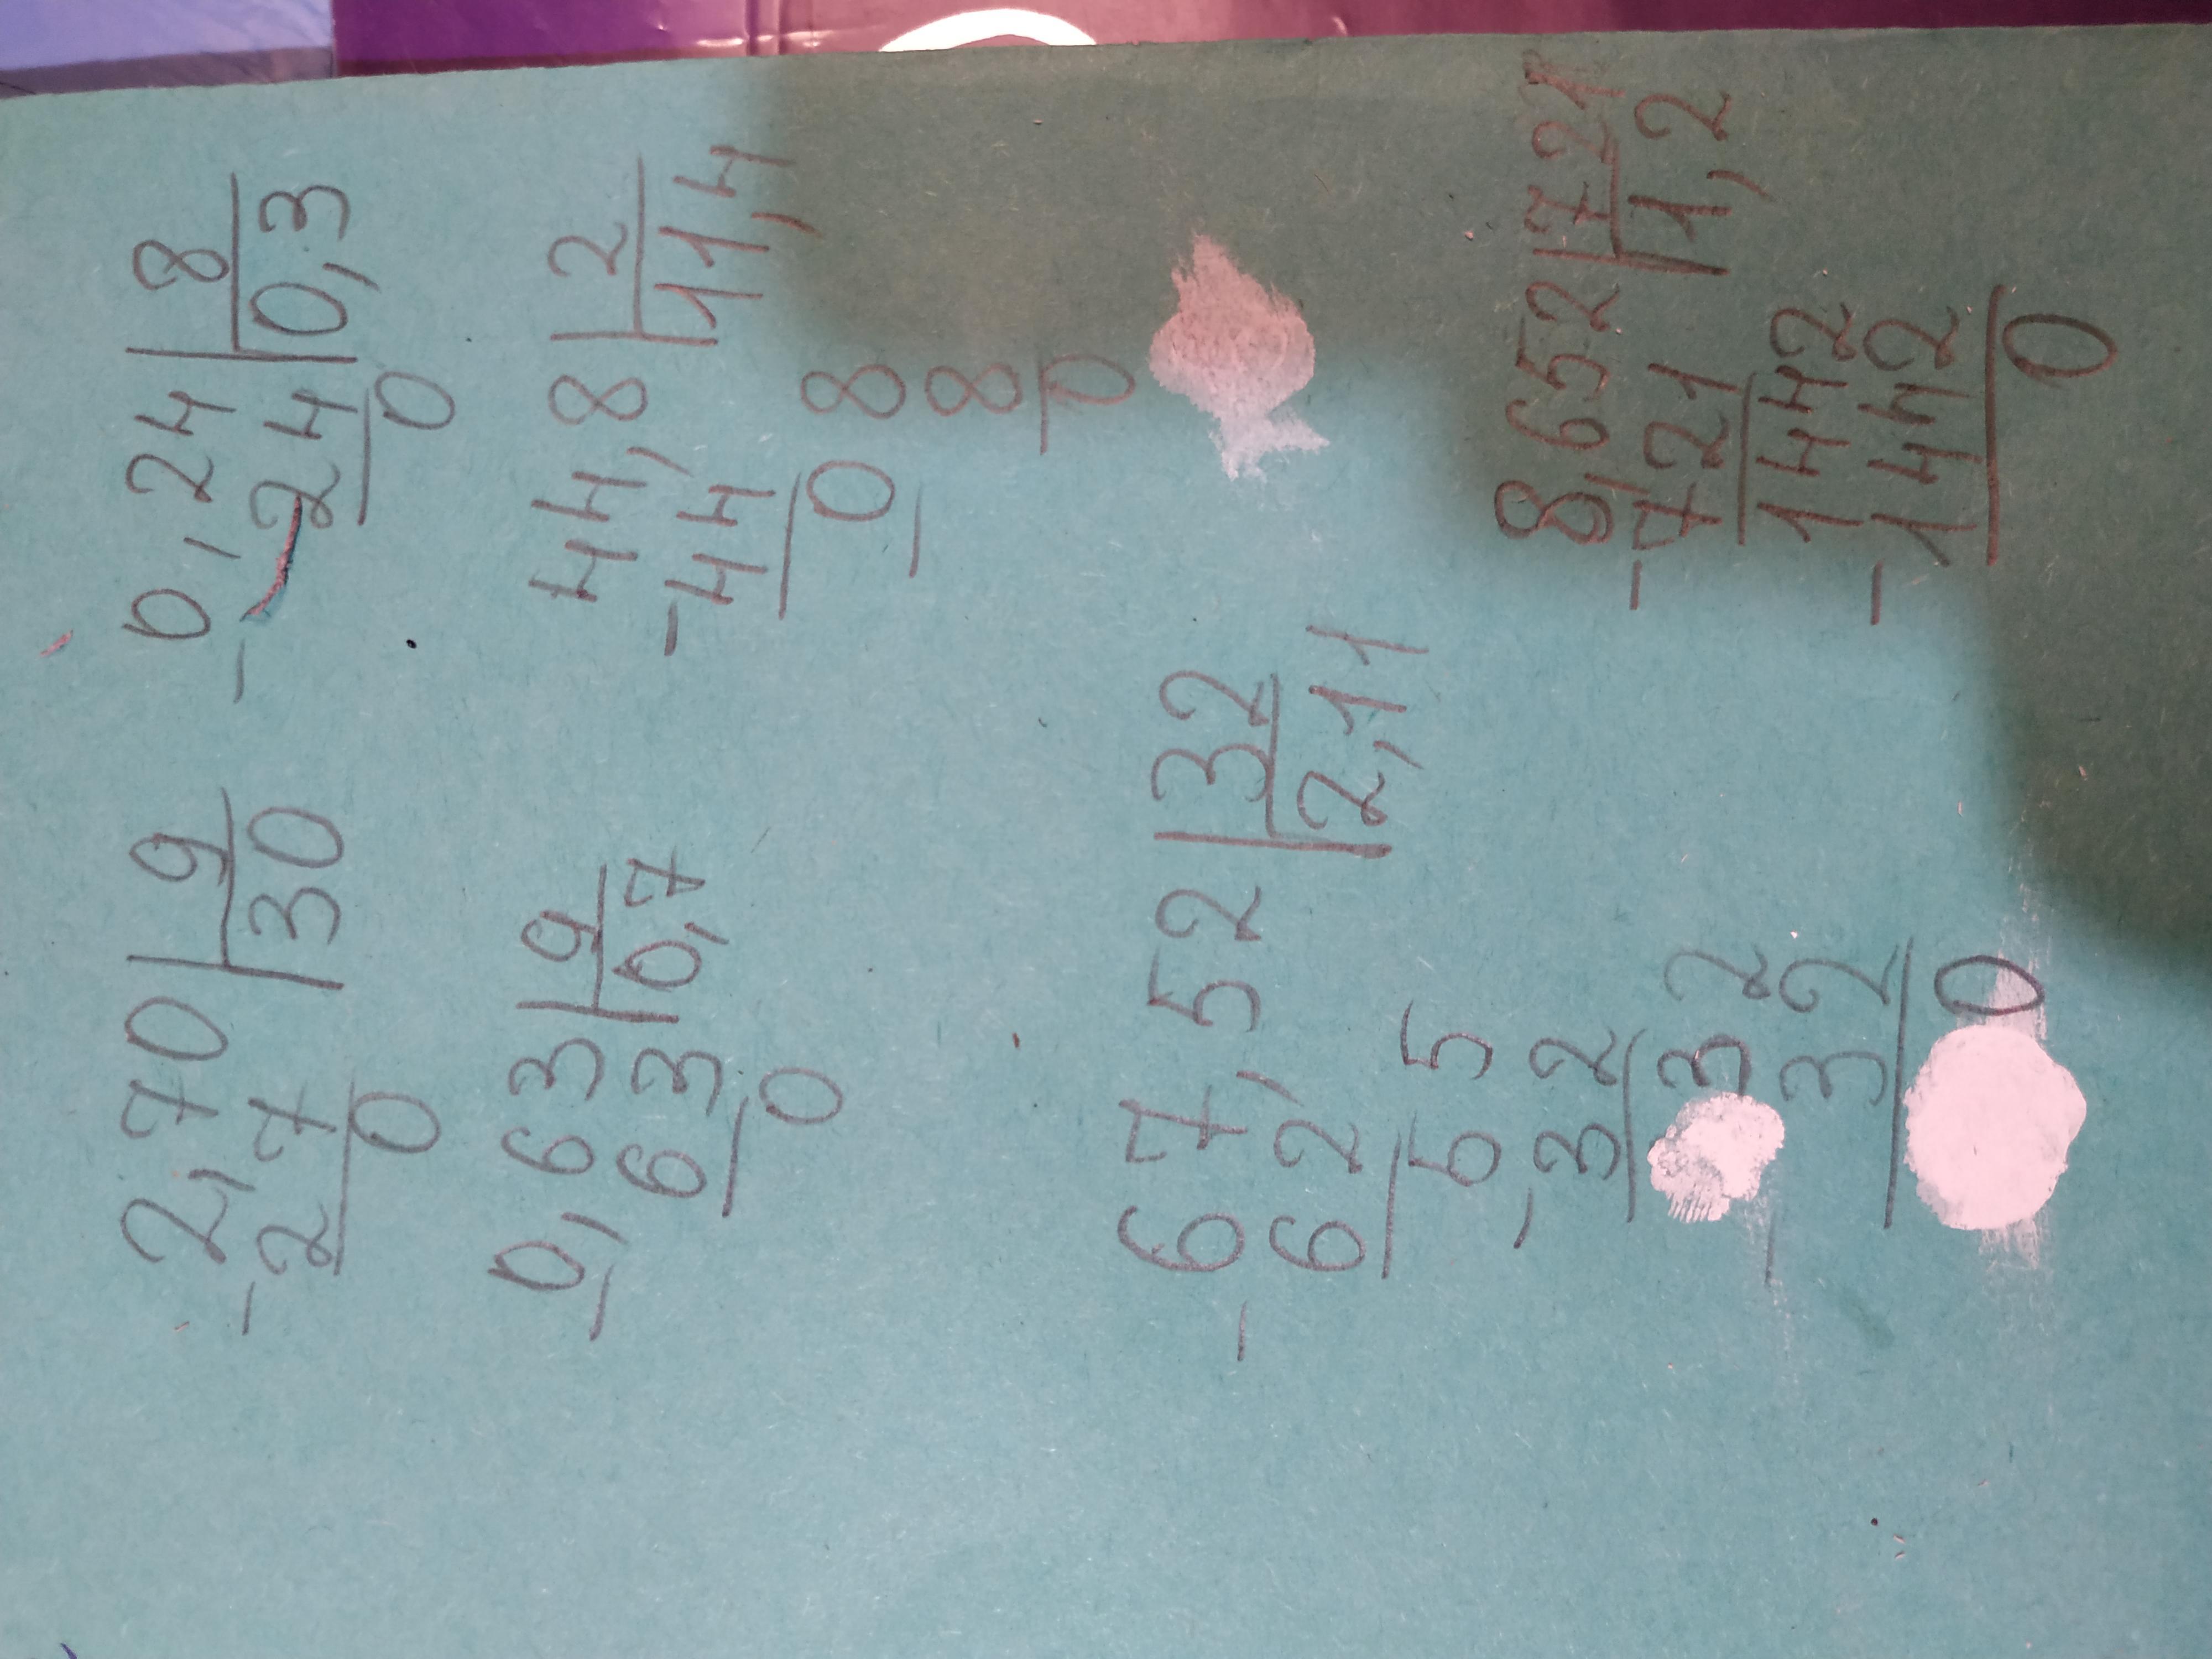 2,70 | 9
- 2 7 | 30
0
0,24 | 8
- 24 | 0,3
0
0,63 | 9
- 63 | 0,7
0
44,8 | 2
- 44 | 11,4
0 8
- 8
0
67,52 | 32
- 62 | 2,11
55
- 32
32
- 32
0
8,652 | 721
- 721 | 1,2
1442
- 1442
0